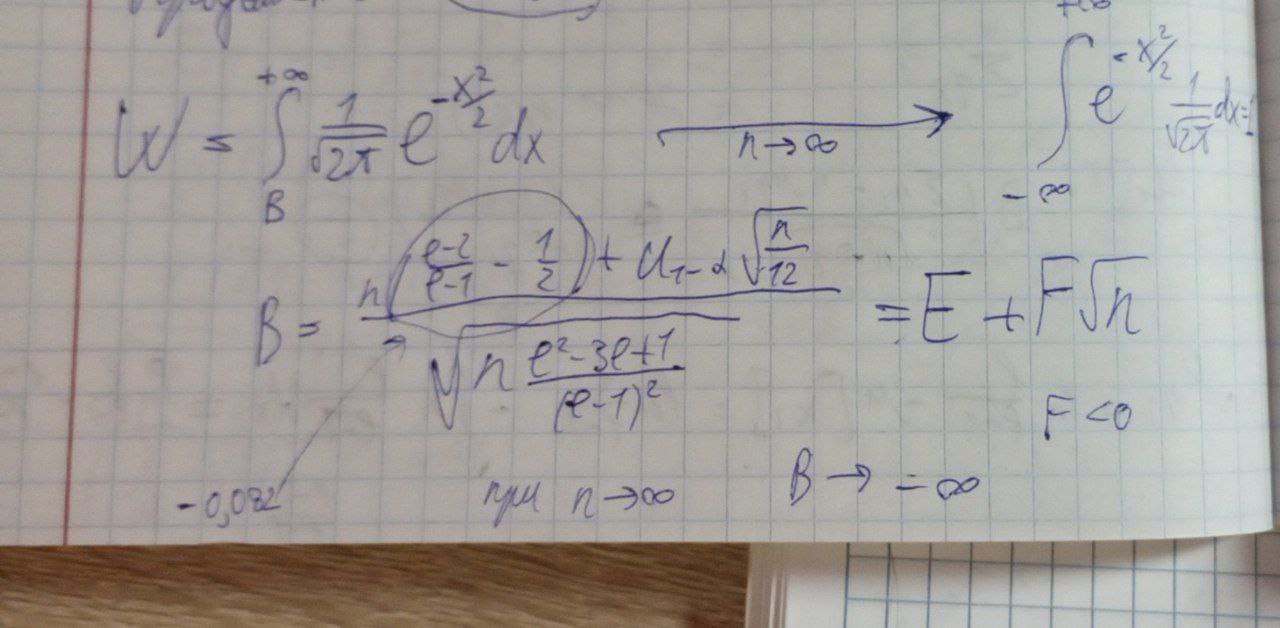 W = ∫_B^{+∞} 1/√2π e^{-x²/2} dx → n→∞ ∫_{-∞}^{+∞} e^{-x²/2} 1/√2π dx=1
B = (n((e-2)/(e-1) - 1/2) + U_{1-α} √(n/12)) / √(n (e²-3e+1)/(e-1)²) = E + F√n
F<0
-0,082 при n→∞ B → -∞